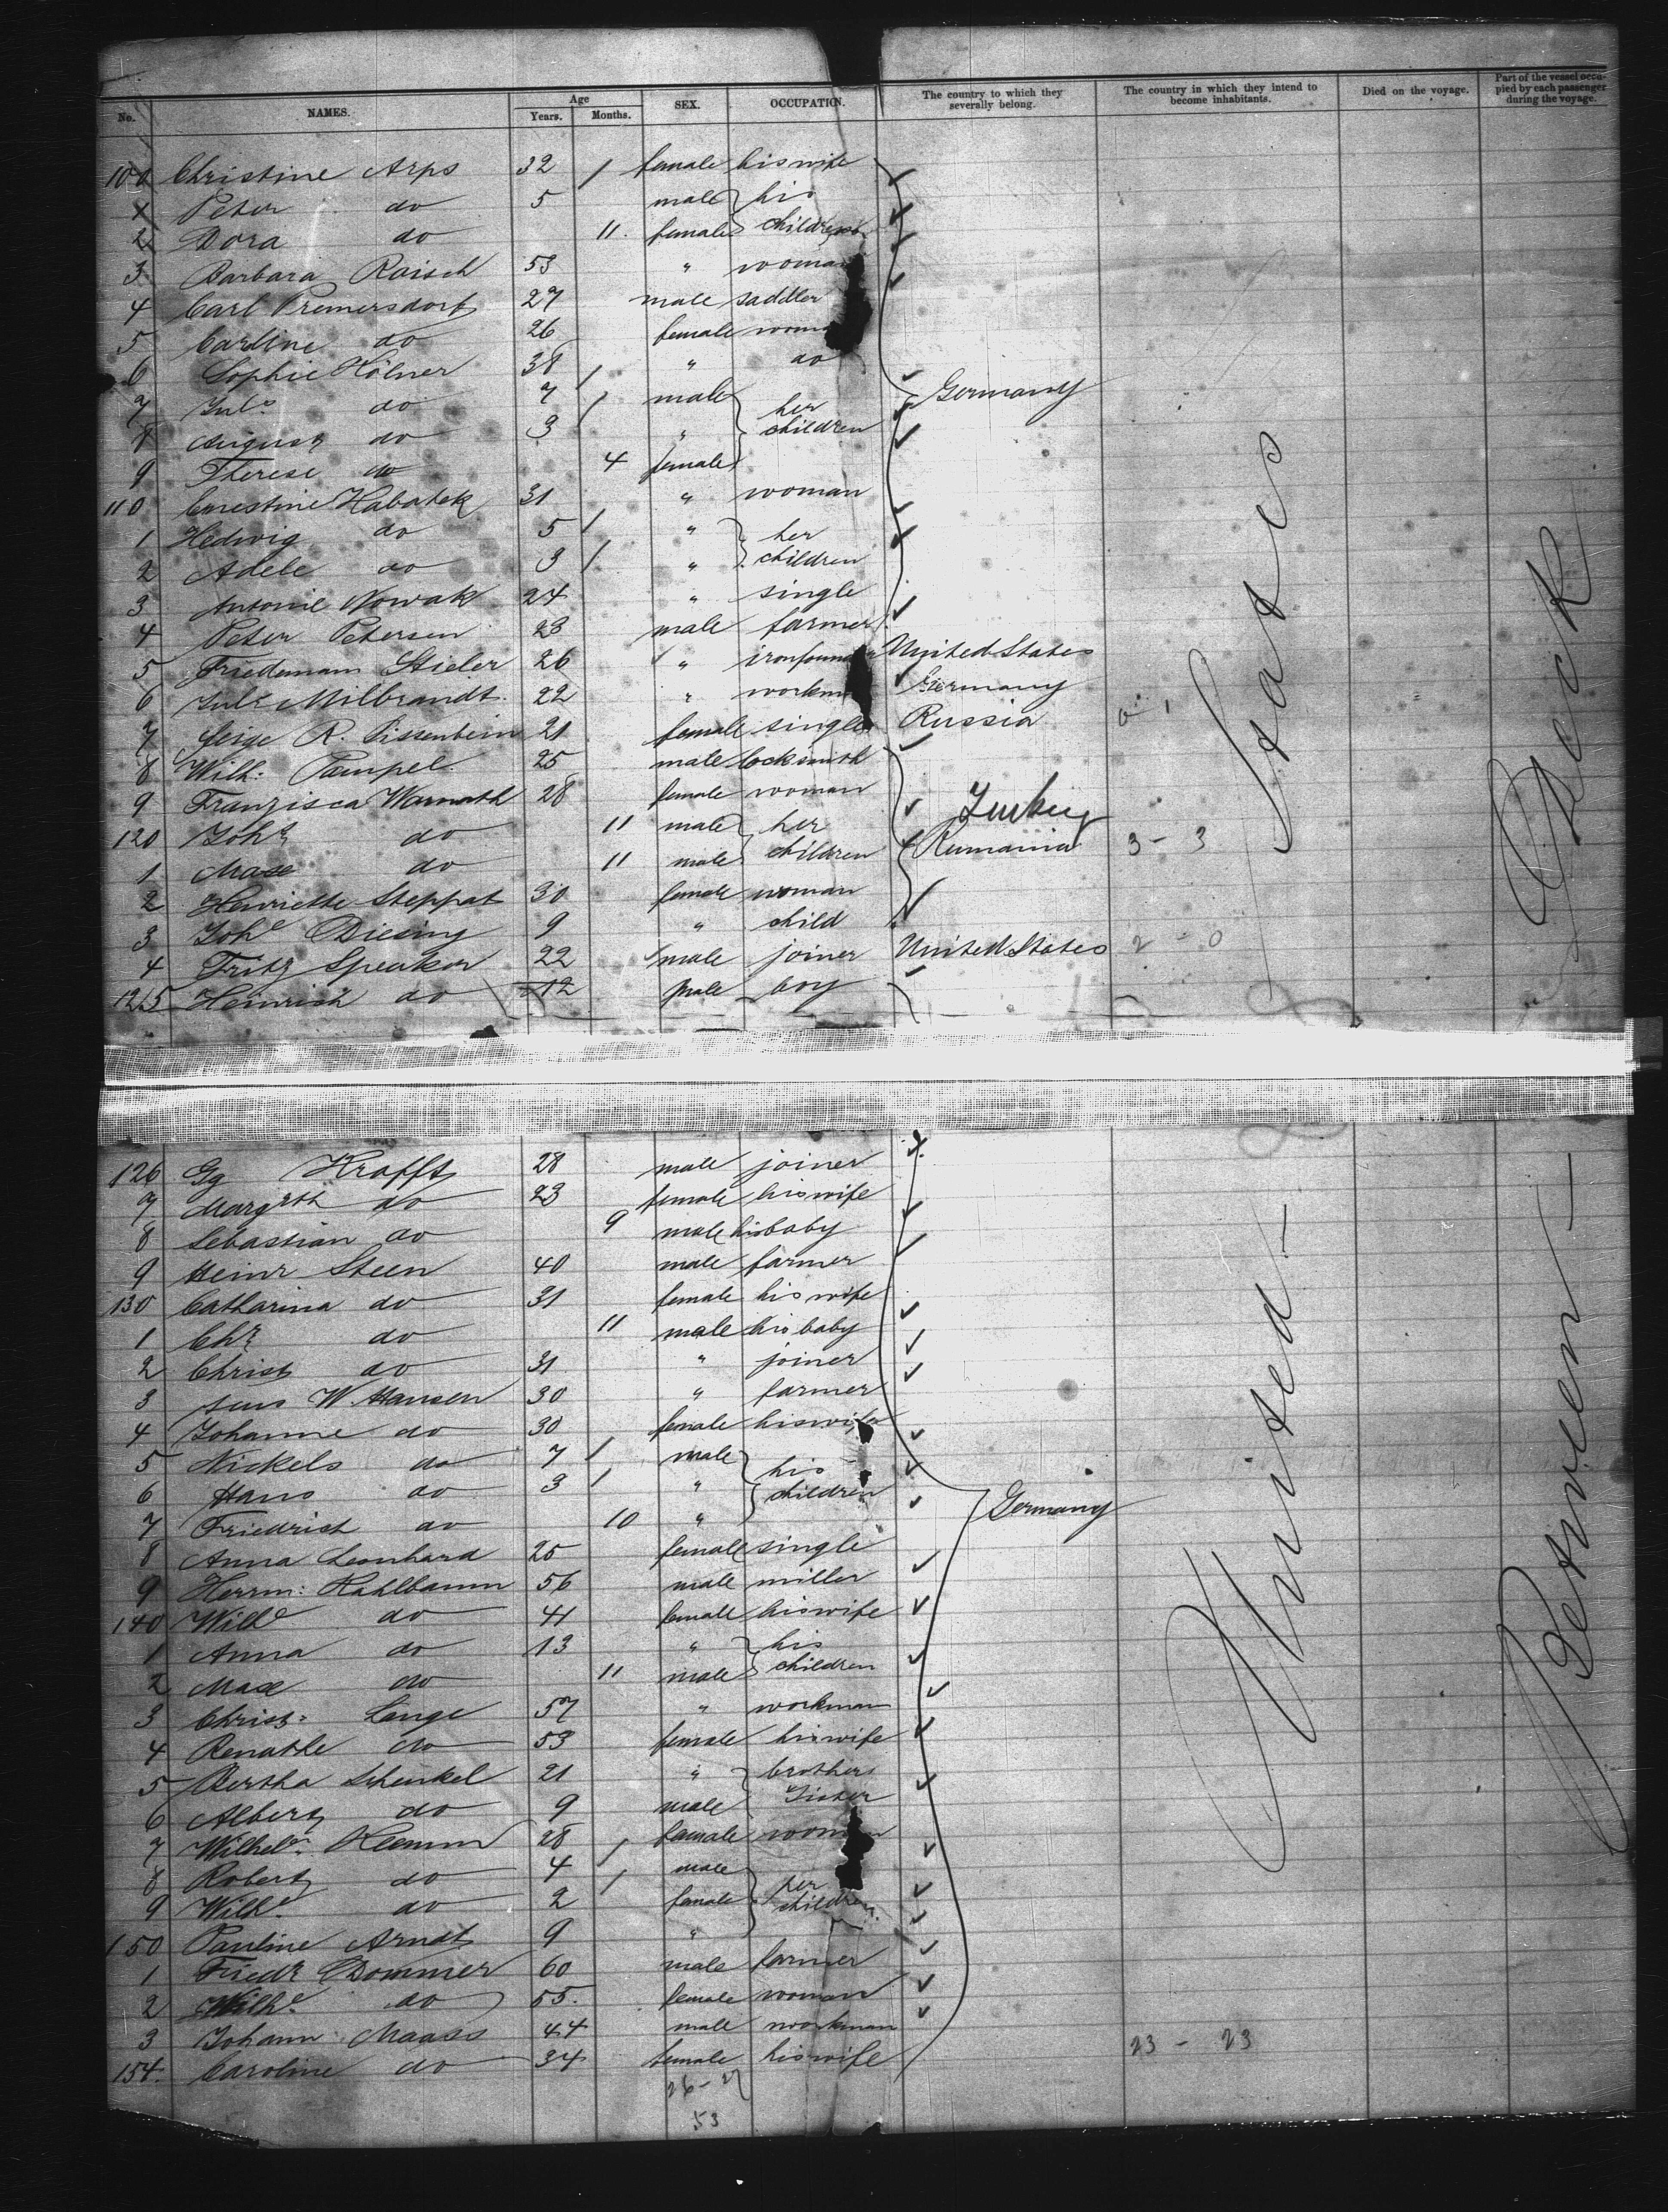 No. NAMES. Age Years. Months. SEX. OCCUPATION. The country to which they severally belong. The country in which they intend to become inhabitants. Died on the voyage. Part of the vessel occupied by each passenger during the voyage.
100 Christine Arps 32 female his wife
1 Peter do 5 male his
2 Dora do 11 female children
3 Barbara Raisch 53 " woman
4 Carl Premersdorf 27 male saddler
5 Carline do 26 female woman
6 Sophie Hölner 38 " do
7 Jul. do 7 male her Germany
8 August do 3 " children
9 Therese do 4 female
110 Habatek 31 " woman
1 Hedwig do 5 " her
2 Adele do 3 " children
3 Antonie Nowak 24 " single
4 Peter Petersen 23 male farmer
5 Friedemann Stieler 26 " United States
6 Jul. Milbrandt 22 " workman Germany
7 R. Pissenbein 21 female single Russia
8 Wilh: Pampel 25 male locksmith
9 Franzisca Warnath 28 female woman Turkey
120 Joh. do 11 male her
1 Max do 11 male children Rumania 3 - 3
2 Henriette Steppat 30 female woman
3 Joh. Diesing 9 " child
4 Fritz Speaker 22 male joiner United States 2 - 0
125 Heinrich do 12 male boy
126 Gg Krafft 28 male joiner
7 Margrth do 23 female his wife
8 Sebastian do 9 male his baby
9 Heinr Steen 40 male farmer
130 Catharina do 31 female his wife
1 Chr. do 11 male his baby
2 Christ do 31 " joiner
3 Jens W. Hansen 30 " farmer
4 Johanne do 30 female his wife
5 Nickels do 7 male his
6 Hans do 3 " children
7 Friedrich do 10 " Germany
8 Anna Leonhard 25 female single
9 Herrm: Kahlbaum 56 male miller
140 Wilh. do 41 female his wife
1 Anna do 13 " his
2 Max do 11 male children
3 Christ: Lange 57 " workman
4 Renathe do 53 female his wife
5 Bertha Schenkel 21 " brothers
6 Albert do 9 male Sister
7 Wilhel. Klemm 28 female woman
8 Robert do 4 male her
9 Wilh. do 2 female children
150 Pauline Arndt 9 "
1 Friedr Dommer 60 male farmer
2 Wilh. do 55 female woman
3 Johann Maass 44 male workman
154. Caroline do 34 female his wife 23 - 23
26 - 27
53
United States
Between Deck